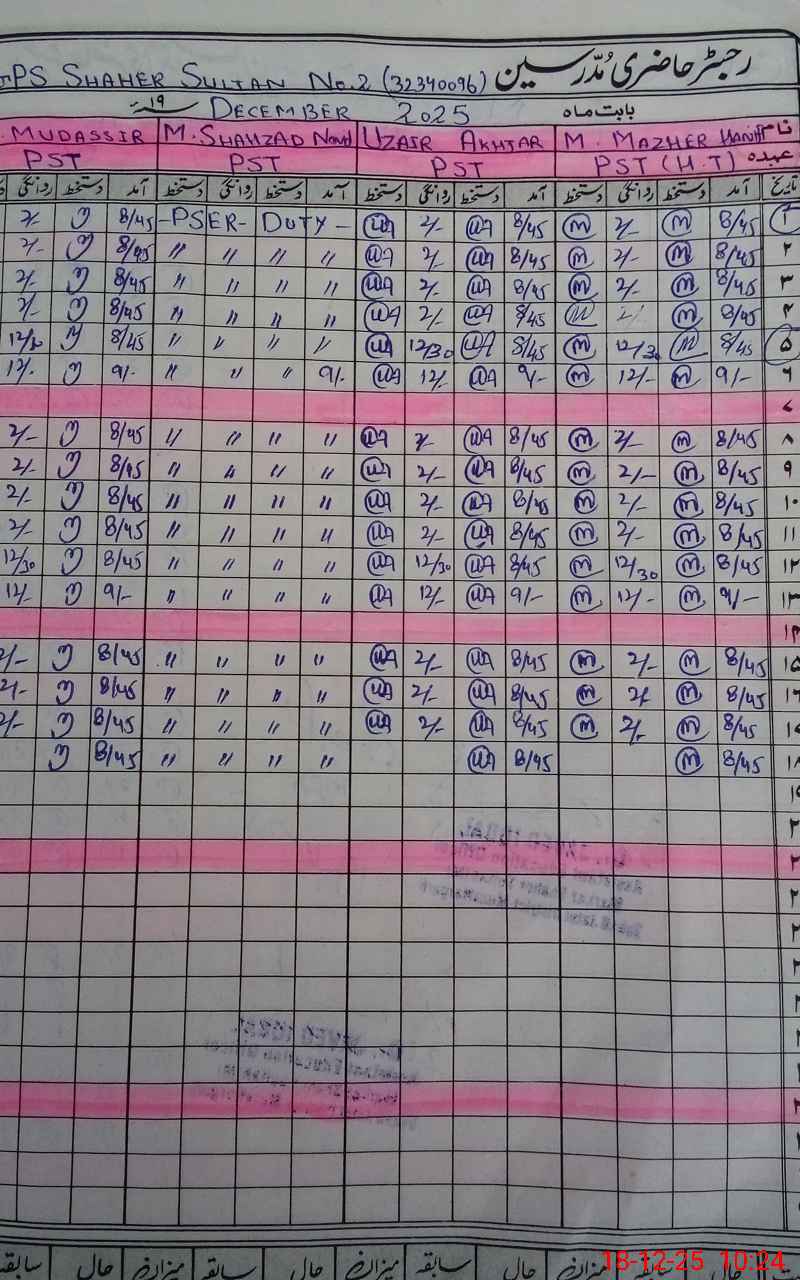 رجسٹر حاضری مُدّرسین GPS SHAHER SULTAN No.2 (32340096)
بابت ماہ DECEMBER 2025 ۱۹ء
نام M. MAZHER Hanif UZAIR AKHTAR M. SHAHZAD Nawd MUDASSIR
عہدہ PST (H.T) PST PST PST
تاریخ آمد دستخط روانگی دستخط آمد دستخط روانگی دستخط آمد دستخط روانگی دستخط آمد دستخط روانگی
۱ 8/45 M 2/- M 8/45 UA 2/- UA -PSER- DUTY- 8/45 2/-
۲ 8/45 M 2/- M 8/45 UA 2/- UA " " " " 8/45 2/-
۳ 8/45 M 2/- M 8/45 UA 2/- UA " " " " 8/45 2/-
۴ 8/45 M 2/- M 8/45 UA 2/- UA " " " " 8/45 2/-
۵ 8/45 M 12/30 M 8/45 UA 12/30 UA " " " " 8/45 12/30
۶ 9/- M 12/- M 9/- UA 12/- UA 9/- " " " 9/- 12/-
۷
۸ 8/45 M 2/- M 8/45 UA 2/- UA " " " " 8/45 2/-
۹ 8/45 M 2/- M 8/45 UA 2/- UA " " " " 8/45 2/-
۱۰ 8/45 M 2/- M 8/45 UA 2/- UA " " " " 8/45 2/-
۱۱ 8/45 M 2/- M 8/45 UA 2/- UA " " " " 8/45 2/-
۱۲ 8/45 M 12/30 M 8/45 UA 12/30 UA " " " " 8/45 12/30
۱۳ 9/- M 12/- M 9/- UA 12/- UA " " " " 9/- 12/-
۱۴
۱۵ 8/45 M 2/- M 8/45 UA 2/- UA " " " " 8/45 2/-
۱۶ 8/45 M 2/- M 8/45 UA 2/- UA " " " " 8/45 2/-
۱۷ 8/45 M 2/- M 8/45 UA 2/- UA " " " " 8/45 2/-
۱۸ 8/45 M 8/45 UA " " " " 8/45
میزان حال سابقہ میزان حال سابقہ میزان حال سابقہ
18-12-25 10:24